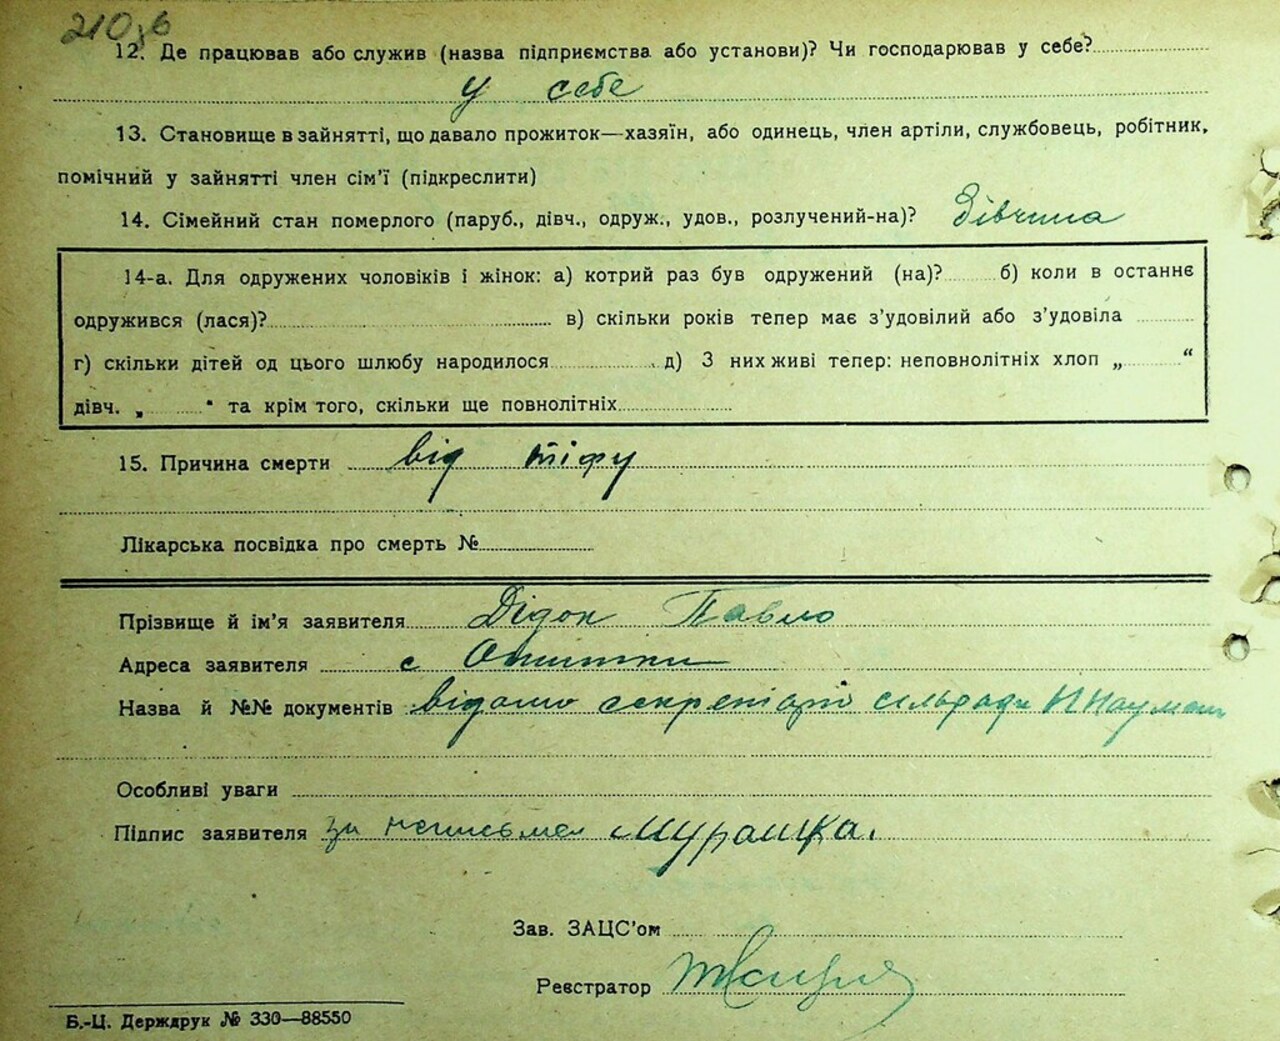 210зв
12. Де працював або служив (назва підприємства або установи)? Чи господарював у себе?
у себе
13. Становище в зайнятті, що давало прожиток—хазяїн, або одинець, член артіли, службовець, робітник,
помічний у зайнятті член сім’ї (підкреслити)
14. Сімейний стан померлого (паруб., дівч., одруж., удов., розлучений-на)? Дівчина
14-а. Для одружених чоловіків і жінок: а) котрий раз був одружений (на)? б) коли в останнє
одружився (лася)? в) скільки років тепер має з’удовілий або з’удовіла
г) скільки дітей од цього шлюбу народилося д) З них живі тепер: неповнолітніх хлоп „ “
дівч. „ “ та крім того, скільки ще повнолітніх
15. Причина смерти від тіфу
Лікарська посвідка про смерть №
Прізвище й ім’я заявителя Дідок Павло
Адреса заявителя с
Назва й №№ документів відомо секретарю сельради
Особливі уваги
Підпис заявителя за неписьмен Мурашка.
Зав. ЗАЦС’ом
Реєстратор
Б.-Ц. Держдрук № 330—88550